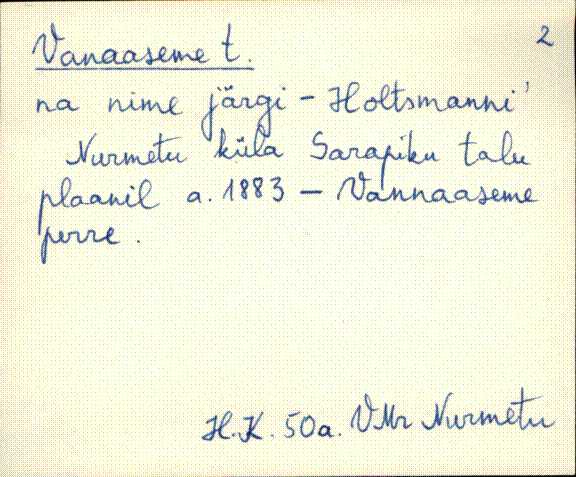 Vanaaseme t. 2
na nime järgi - Holtsmanni'
Nurmetu küla Sarapiku talu
plaanil a. 1883 - Vannaaseme
perre.
H.K. 50a. VMr Nurmetu